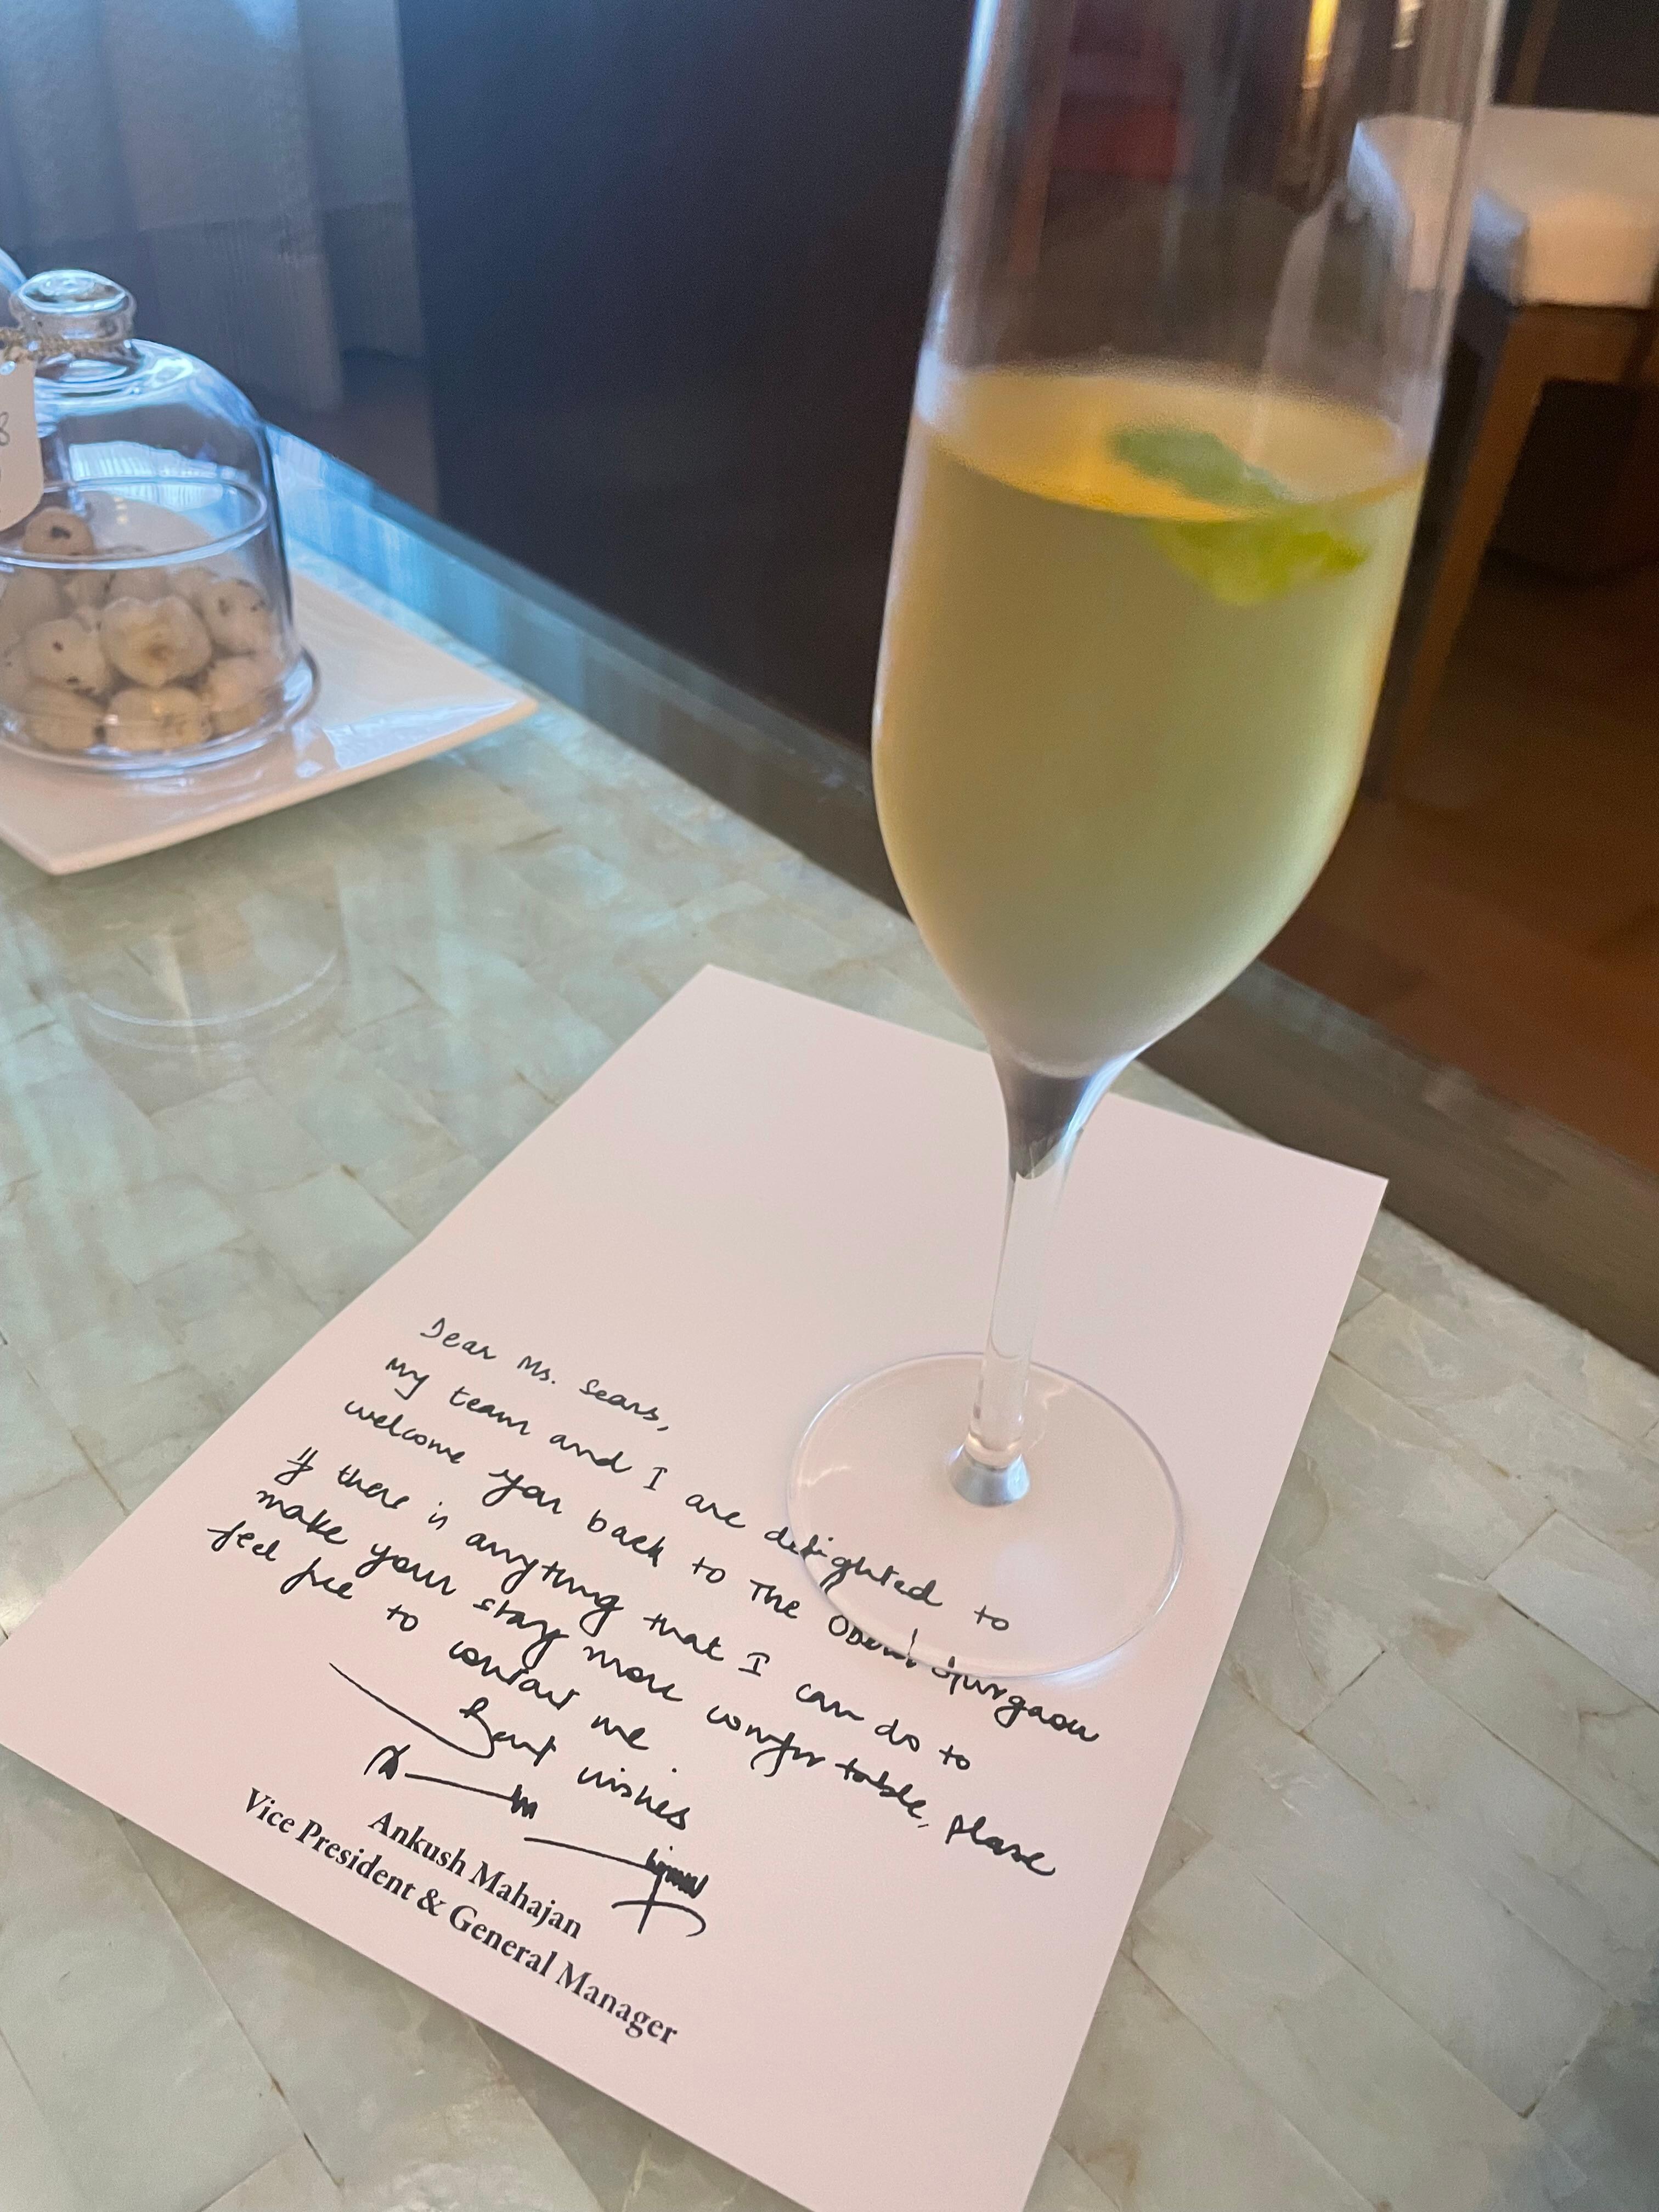 8
Dear Ms. Sears,
My team and I are delighted to
welcome you back to The Oberoi Gurgaon
If there is anything that I can do to
make your stay more comfortable, please
feel free to contact me
Best wishes
Ankush Mahajan
Vice President & General Manager